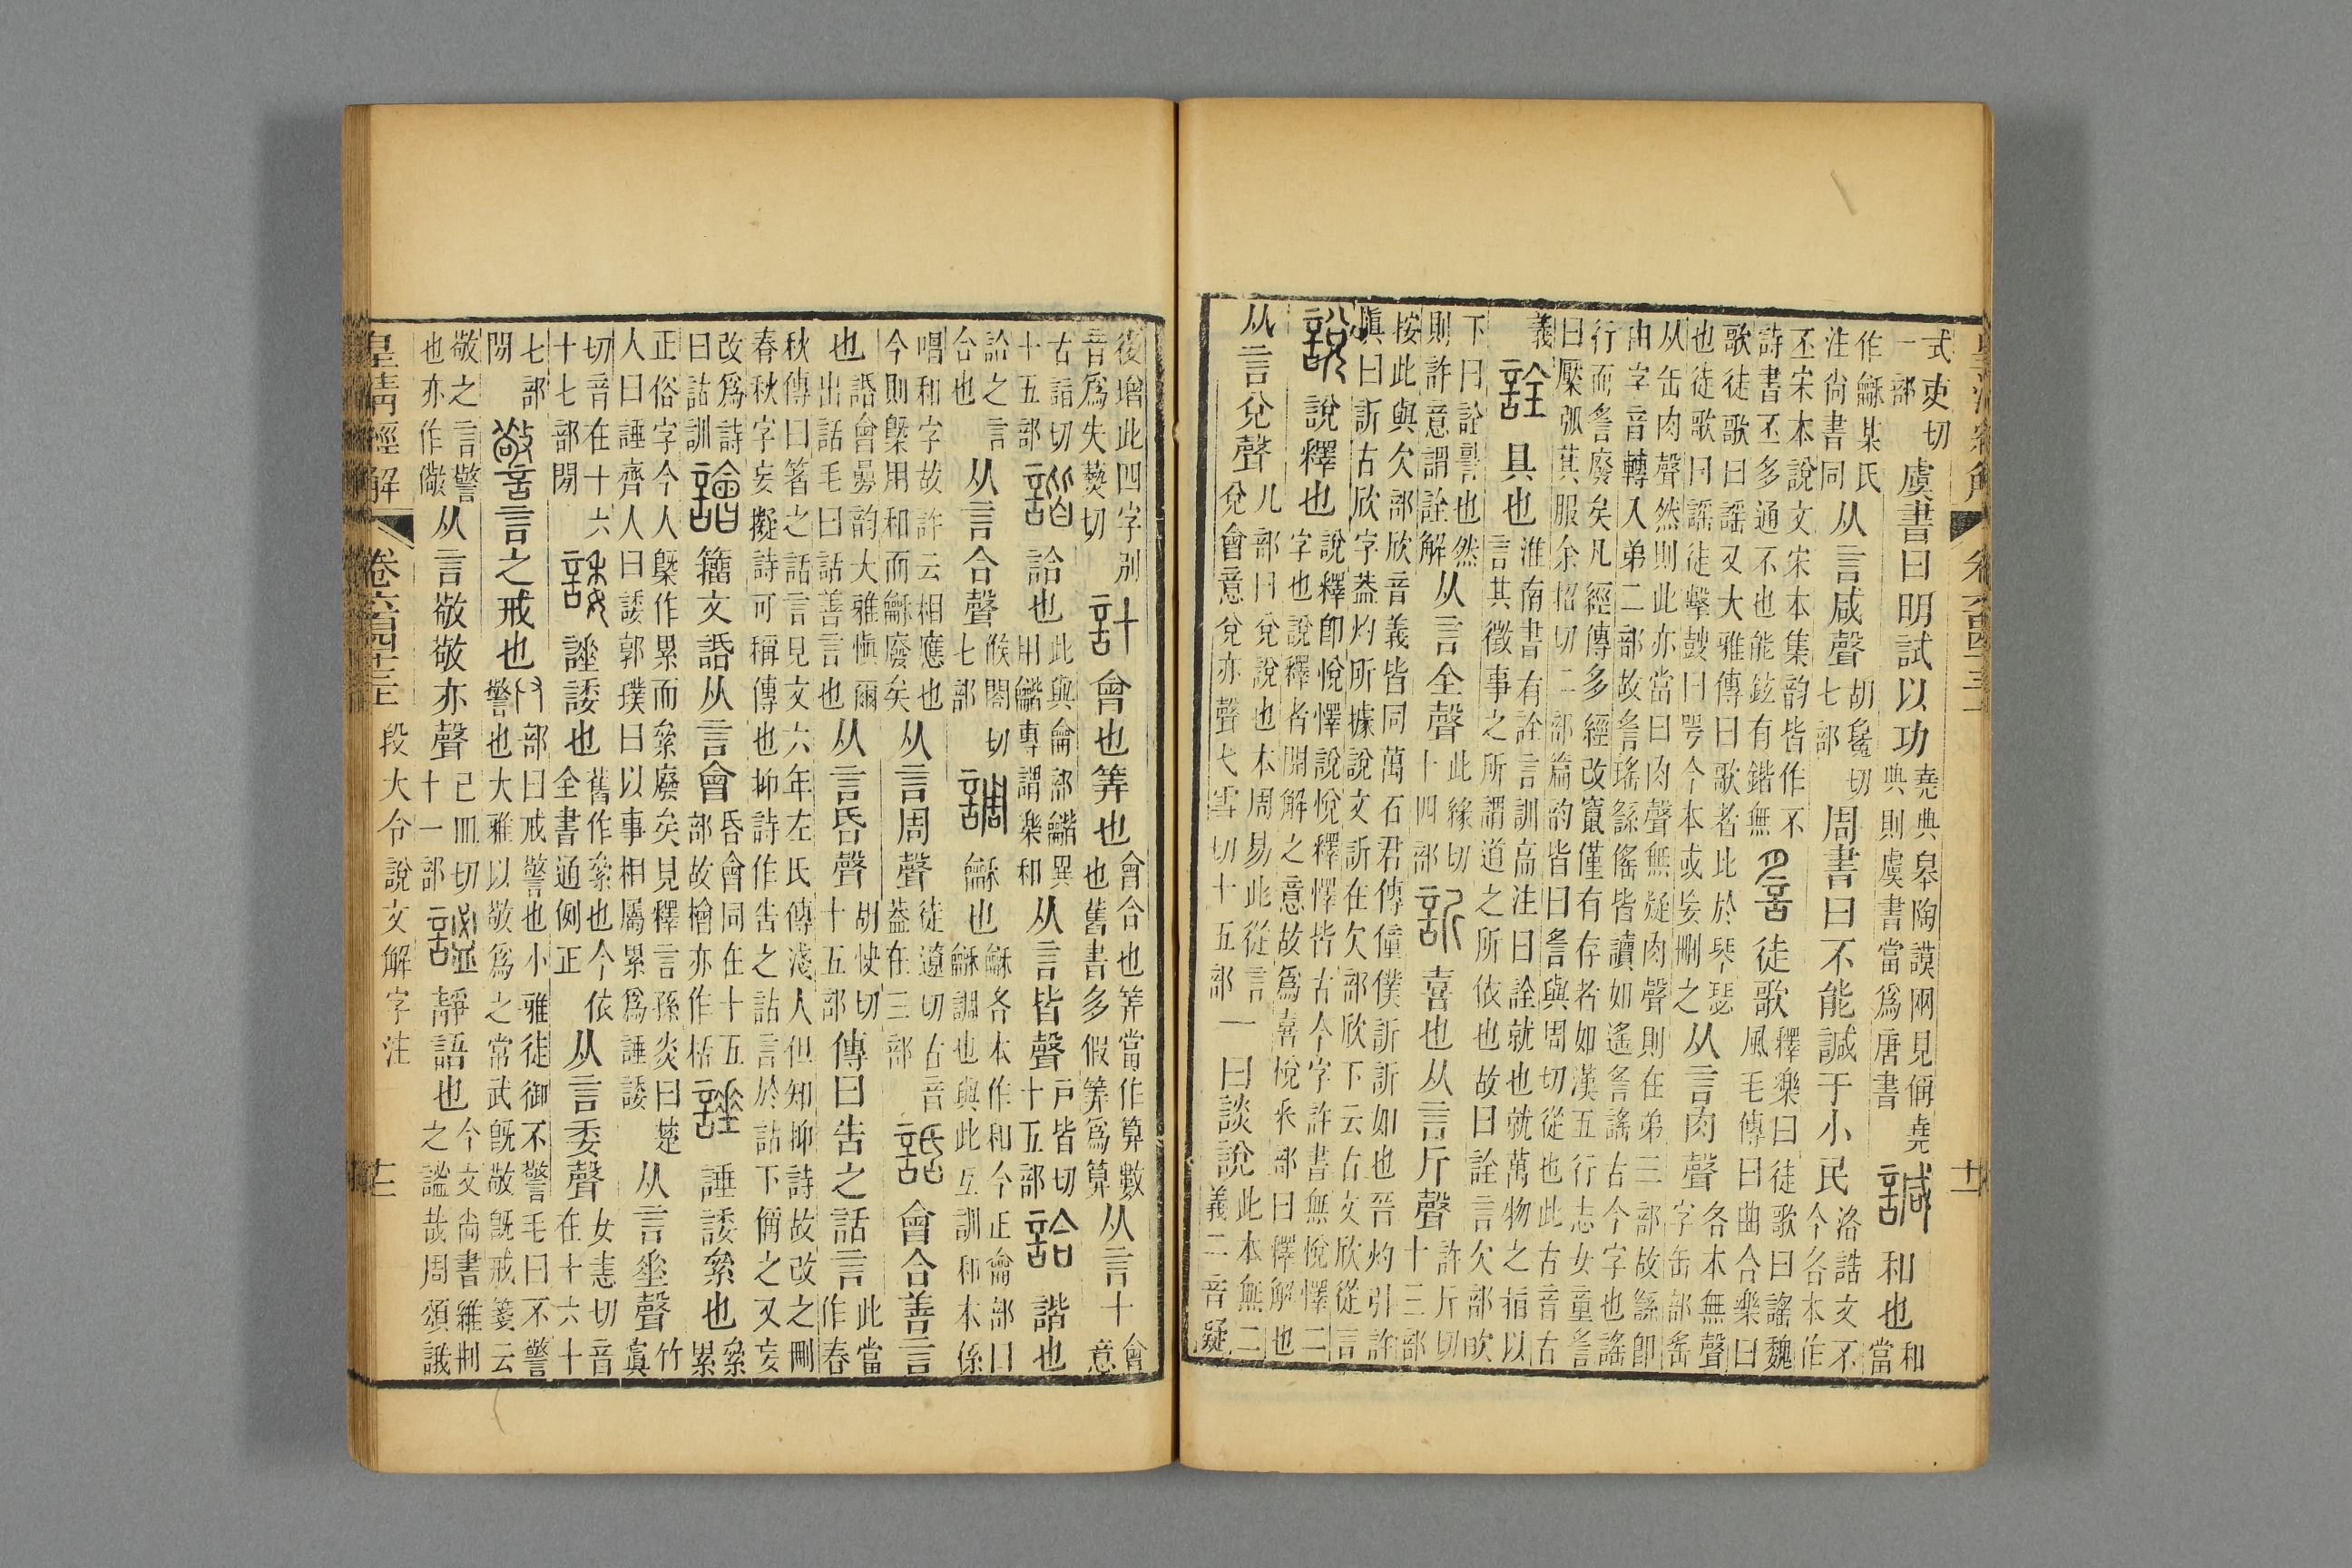 皇清經解 卷六百四十三 十二
式吏切一部虞書曰明試以功堯典臯陶謨兩見偁堯典則虞書當爲唐書諴和也和當
作龢某氏注尙書同从言咸聲胡毚切七部周書曰不能諴于小民洛誥文不今各本作
丕宋本說文宋本集韵皆作不詩書丕多通不也能鉉有鍇無䚻徒歌釋樂曰徒歌曰謠魏風毛傳曰曲合樂曰
歌徒歌曰謠又大雅傳曰歌者比於琴瑟也徒歌曰謠徒擊鼓曰咢今本或妄刪之从言肉聲各本無聲字缶部䍃
从缶肉聲然則此亦當曰肉聲無疑肉聲則在弟三部故繇卽由字音轉入弟二部故䚻瑤繇傜皆讀如遙䚻謠古今字也謠
行而䚻廢矣凡經傳多經改竄僅有存者如漢五行志女童䚻曰檿弧萁服余招切二部篇韵皆曰䚻與周切從也此古音古
義詮具也淮南書有詮言訓高注曰詮就也就萬物之指以言其徵事之所謂道之所依也故曰詮言欠部㰟
下曰詮䛐也然則許意謂詮解从言全聲此緣切十四部訢喜也从言斤聲許斤切十三部
按此與欠部欣音義皆同萬石君傳僮僕訢訢如也晉灼引許愼曰訢古欣字葢灼所據說文訢在欠部欣下云古文欣從言
說說釋也說釋卽悅懌說悅釋懌皆古今字許書無悅懌二字也說釋者開解之意故爲喜悅釆部曰釋解也
从言兌聲儿部曰兌說也本周易此從言兌會意兌亦聲弋雪切十五部一曰談說此本無二義二音疑
後增此四字別音爲失爇切計會也筭也會合也筭當作算數也舊書多假筭爲算从言十會意
古詣切十五部諧詥也此與龠部龤異用龤專謂樂和从言皆聲戸皆切十五部詥諧也
詥之言合也从言合聲候閤切七部調龢也龢各本作和今正龠部曰龢調也與此互訓和本係
唱和字故許云相應也今則槩用和而龢廢矣从言周聲徒遼切古音葢在三部䛡會合善言
也䛡會曡韵大雅愼爾出話毛曰話善言也从言昏聲胡快切十五部傳曰告之話言此當作春
秋傳曰箸之話言見文六年左氏傳淺人但知抑詩故改之刪春秋字妄擬詩可稱傳也抑詩作告之詁言於詁下偁之又妄
改爲詩曰詁訓譮籒文䛡从言會昏會同在十五部故檜亦作桰諈諈諉絫也絫累
正俗字今人槩作累而絫廢矣見釋言孫炎曰楚人曰諈齊人曰諉郭璞曰以事相屬累爲諈諉从言垂聲竹寘
切音在十六十七部閒諉諈諉也舊作絫也今依全書通例正从言委聲女恚切音在十六十
七部閒警言之戒也𠬞部曰戒警也小雅徒御不警毛曰不警警也大雅以敬爲之常武旣敬旣戒箋云
敬之言警也亦作儆从言敬敬亦聲己皿切十一部謐靜語也今文尙書維刑之謐哉周頌誐
皇清經解 卷六百四十三 段大令說文解字注 十二